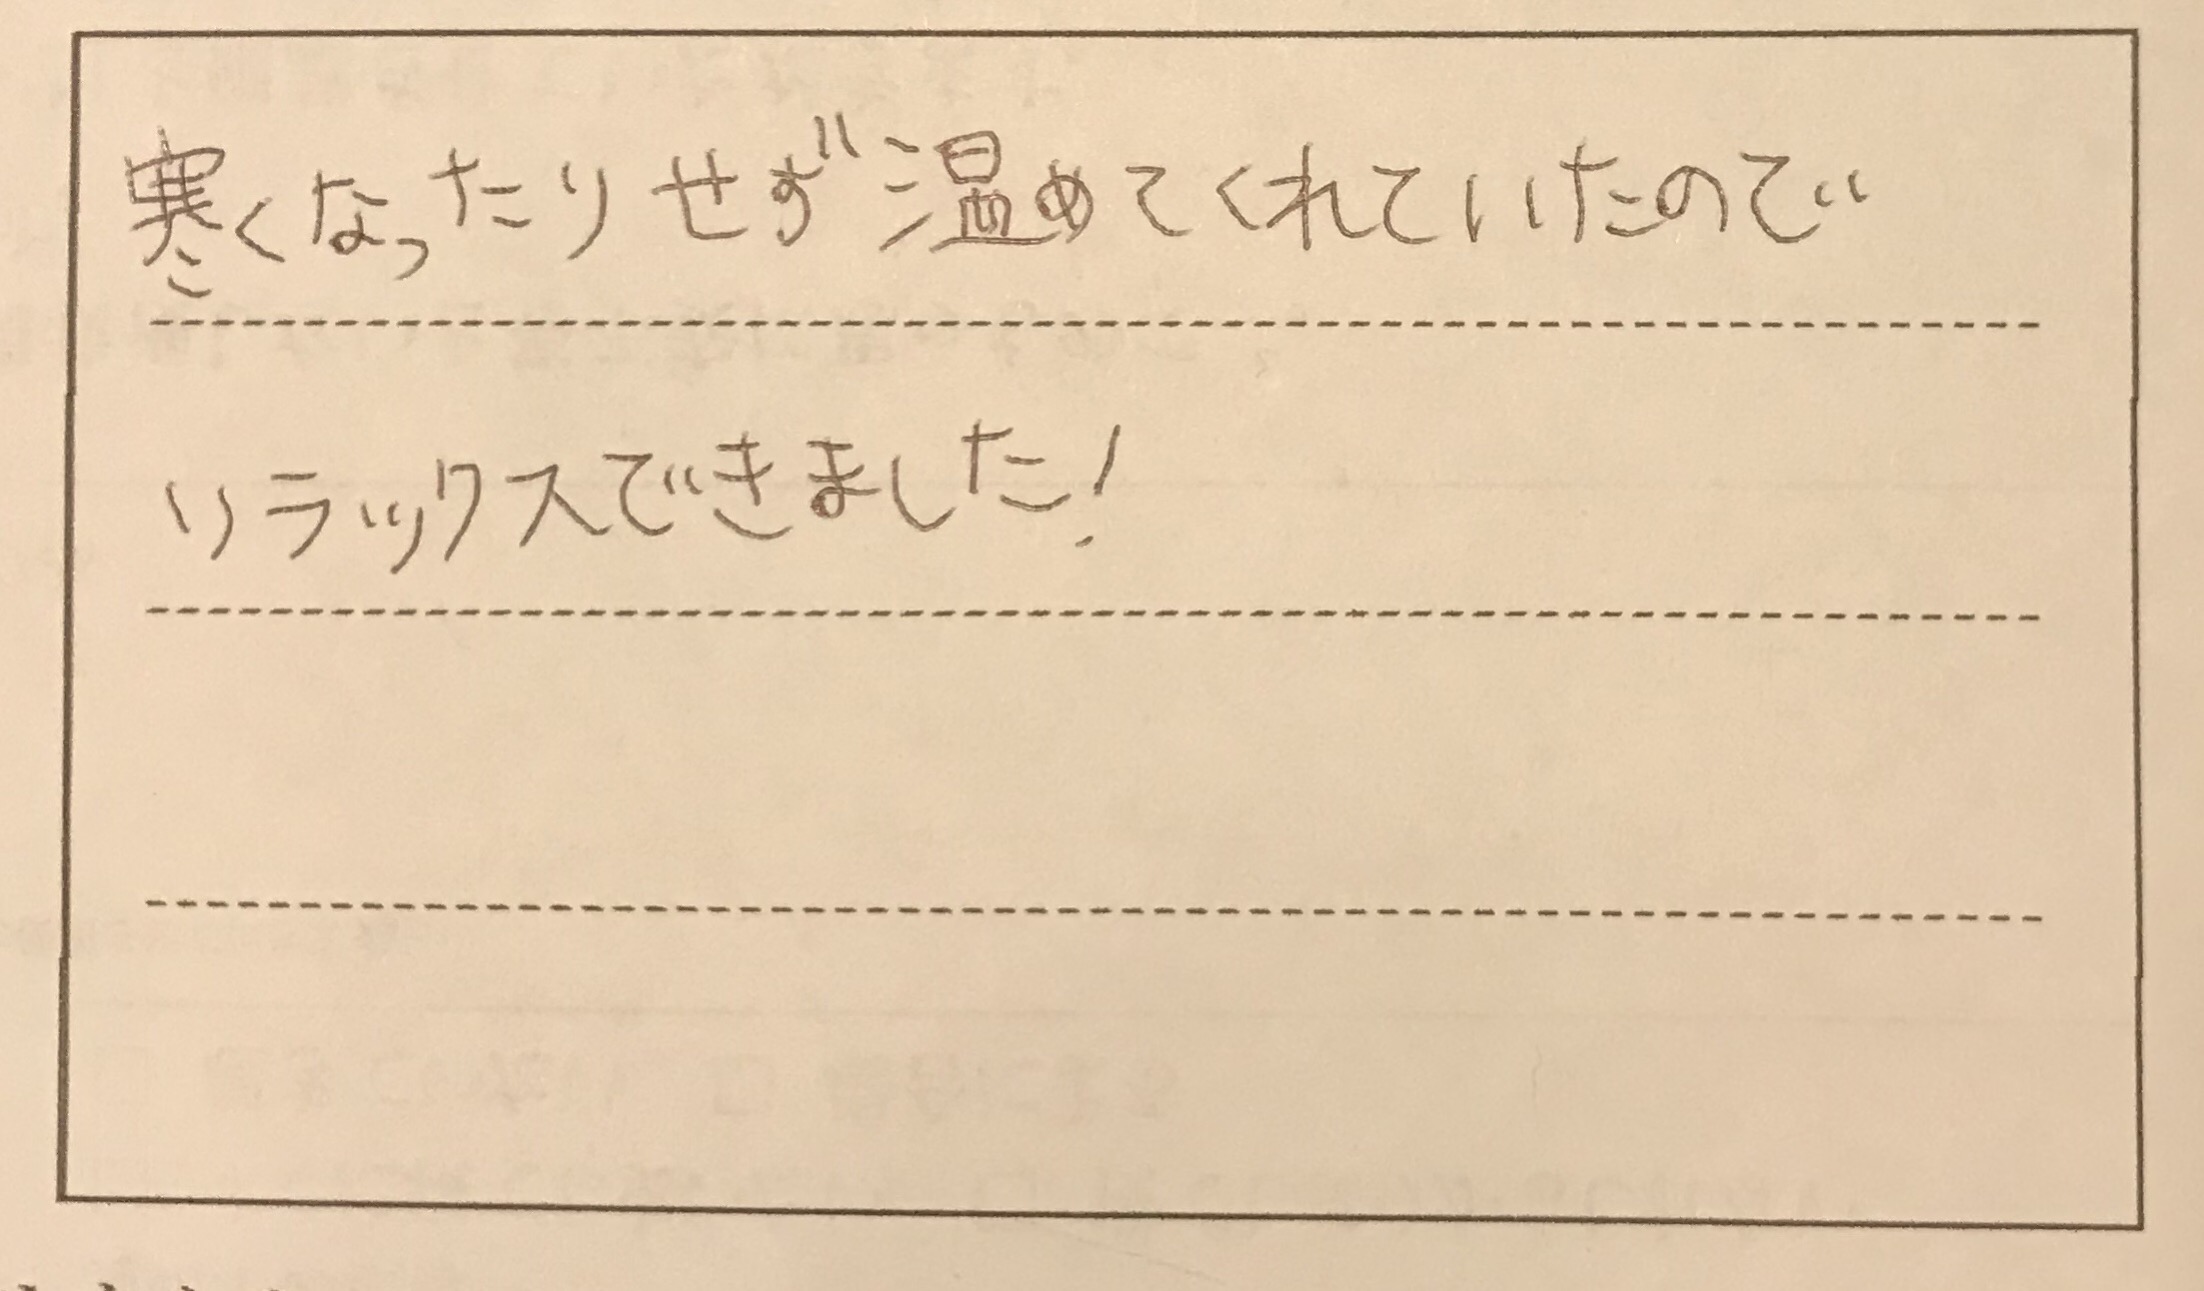 寒くなったりせず温めてくれていたので
リラックスできました!